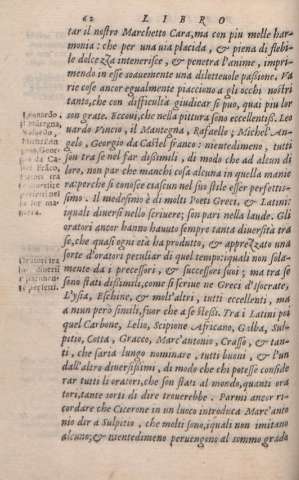 62 LIBRO
tar il nostro Marchetto Cara, ma con piu molle har-
monia: che per una via placida, & piena di flebi-
le dolcezza intenerisce, & penetra l'anime, impri-
mendo in esse soavemente una dilettevole passione. Va
rie cose ancor egualmente piacciono a gli occhi nostri
tanto, che con difficultà giudicar si puo, quai piu lor
son grate. Eccovi, che nella pittura sono eccellentiss. Leo
nardo Vincio, il Mantegna, Rafaello, Michel'An-
gelo, Georgio da Castel franco: nientedimeno, tutti
son tra se nel far dissimili, di modo che ad alcun di
loro, non par che manchi cosa alcuna in quella manie
ra: perche si conosce ciascun nel suo stile esser perfettis-
simo. Il medesimo è di molti Poeti Greci, & Latini:
iquali diversi nello scrivere; son pari nella laude. Gli
oratori ancor hanno havuto sempre tanta diversità tra
se, che quasi ogni età ha produtto, & apprezzato una
sorte d'oratori peculiar di quel tempo: iquali non sola-
mente da i precessori, & successori suoi; ma tra se
sono stati dissimili, come si scrive ne Greci d'Isocrate,
Lysia, Eschine, & molt'altri, tutti eccellenti, ma
a niun però simili, fuor che a se stessi. Tra i Latini poi
quel Carbone, Lelio, Scipione Africano, Galba, Sul-
pitio, Cotta, Gracco, Marc'antonio, Crasso, & tan-
ti, che saria lungo nominare, tutti buoni, & l'un
dall'altro diversissimi, di modo che chi potesse conside
rar tutti li oratori, che son stati al mondo, quanti ora
tori, tante sorti di dire trovarebbe. Parmi ancor ri-
cordare che Cicerone in un luoco introduca Marc'anto
nio dir a Sulpitio, che molti sono, iquali non imitano
alcuno, & nientedimeno pervengono al sommo grado